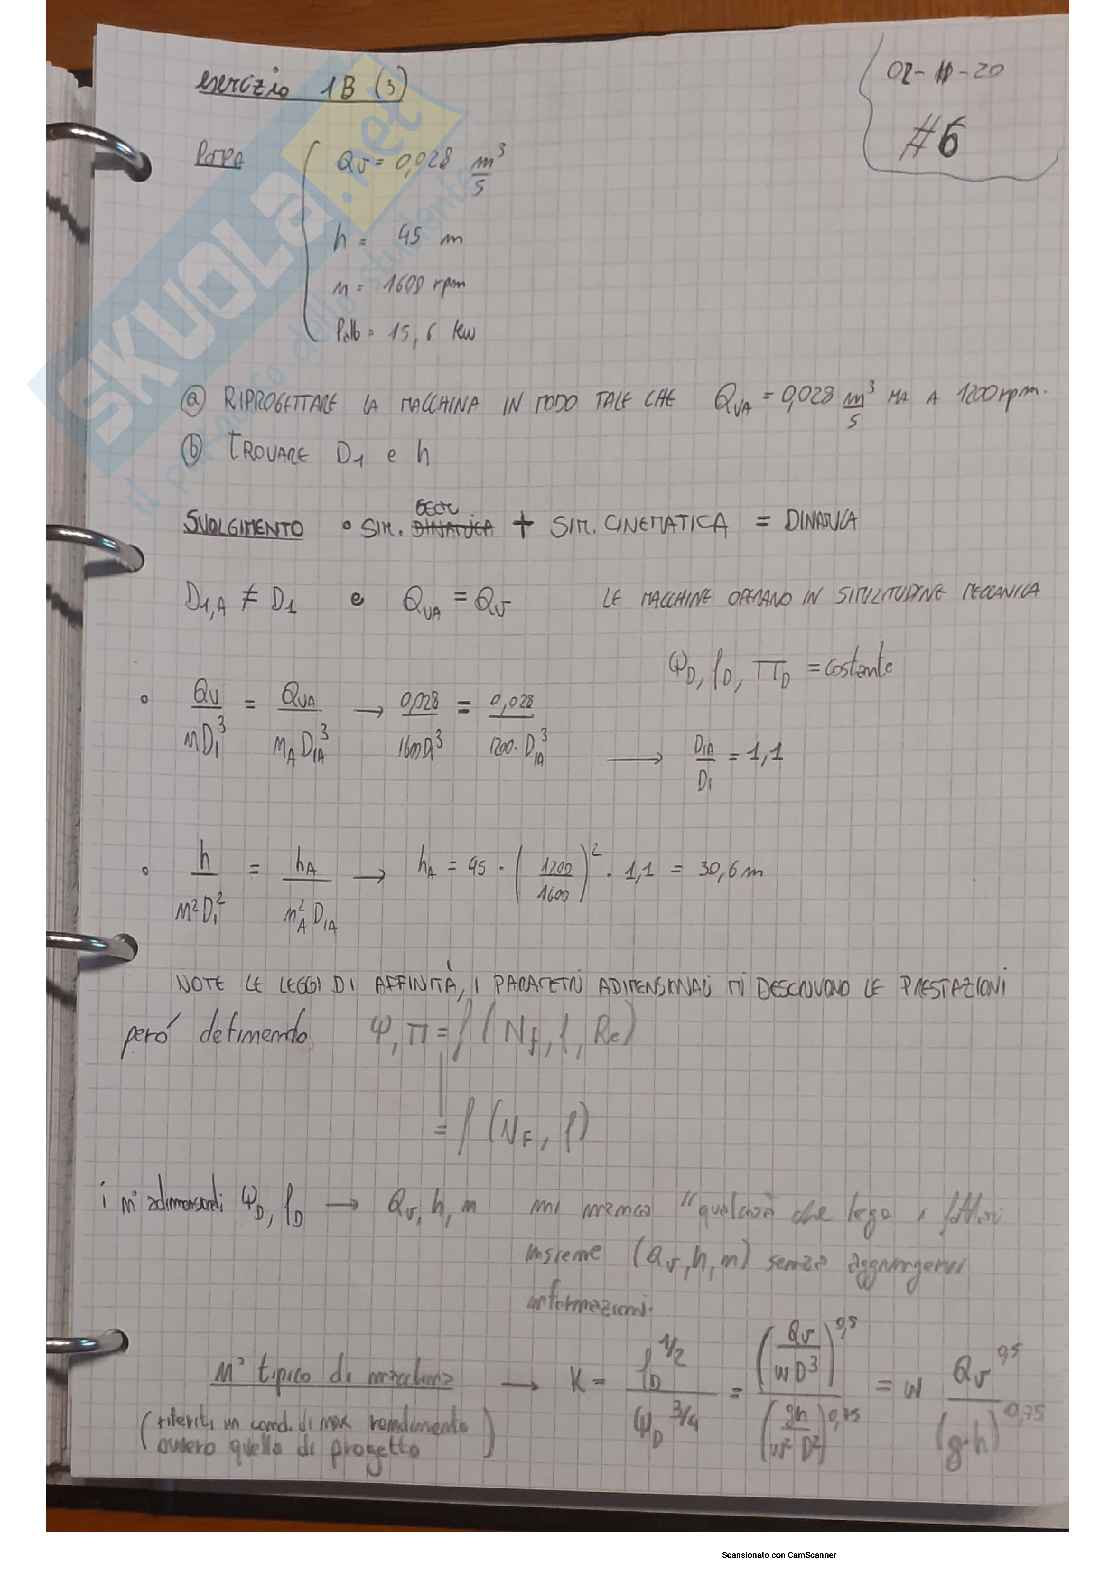 esercizio 1B (3)
02-11-20
#6
POMPA
Qv = 0,028 m³/s
h = 45 m
n = 1600 rpm
Palb = 15,6 kW
ⓐ RIPROGETTARE LA MACCHINA IN MODO TALE CHE QVA = 0,028 m³/s MA A 1200 rpm.
ⓑ TROVARE D1 e h
SVOLGIMENTO • SIM. GEOM DINAMICA + SIM. CINEMATICA = DINAMICA
D1,A ≠ D1 e QVA = Qv LE MACCHINE OPERANO IN SIMILITUDINE MECCANICA
ΨD, φD, πD = costante
• Qv/nD1³ = QVA/nA D1A³ → 0,028/1600D1³ = 0,028/1200·D1A³ → D1A/D1 = 1,1
• h/n²D1² = hA/nA² D1A → hA = 45 · (1200/1600)² · 1,1 = 30,6 m
NOTE LE LEGGI DI AFFINITÀ, I PARAMETRI ADIMENSIONALI MI DESCRIVONO LE PRESTAZIONI
però definendo Ψ, π = f (Nf, φ, Re)
= f (NF, φ)
i n° adimensionali ΨD, φD → Qv, h, n mi manca "qualcosa che lega i fattori
insieme (Qv, h, n) senza aggiungervi
informazioni.
N° tipico di macchina → K = φD^1/2 / ΨD^3/4 = (Qv/ωD³)^0,5 / (gh/ω²D²)^0,75 = ω Qv^0,5 / (g·h)^0,75
(riferiti in cond. di max rendimento
ovvero quello di progetto)
SKUOLA.net
Scansionato con CamScanner